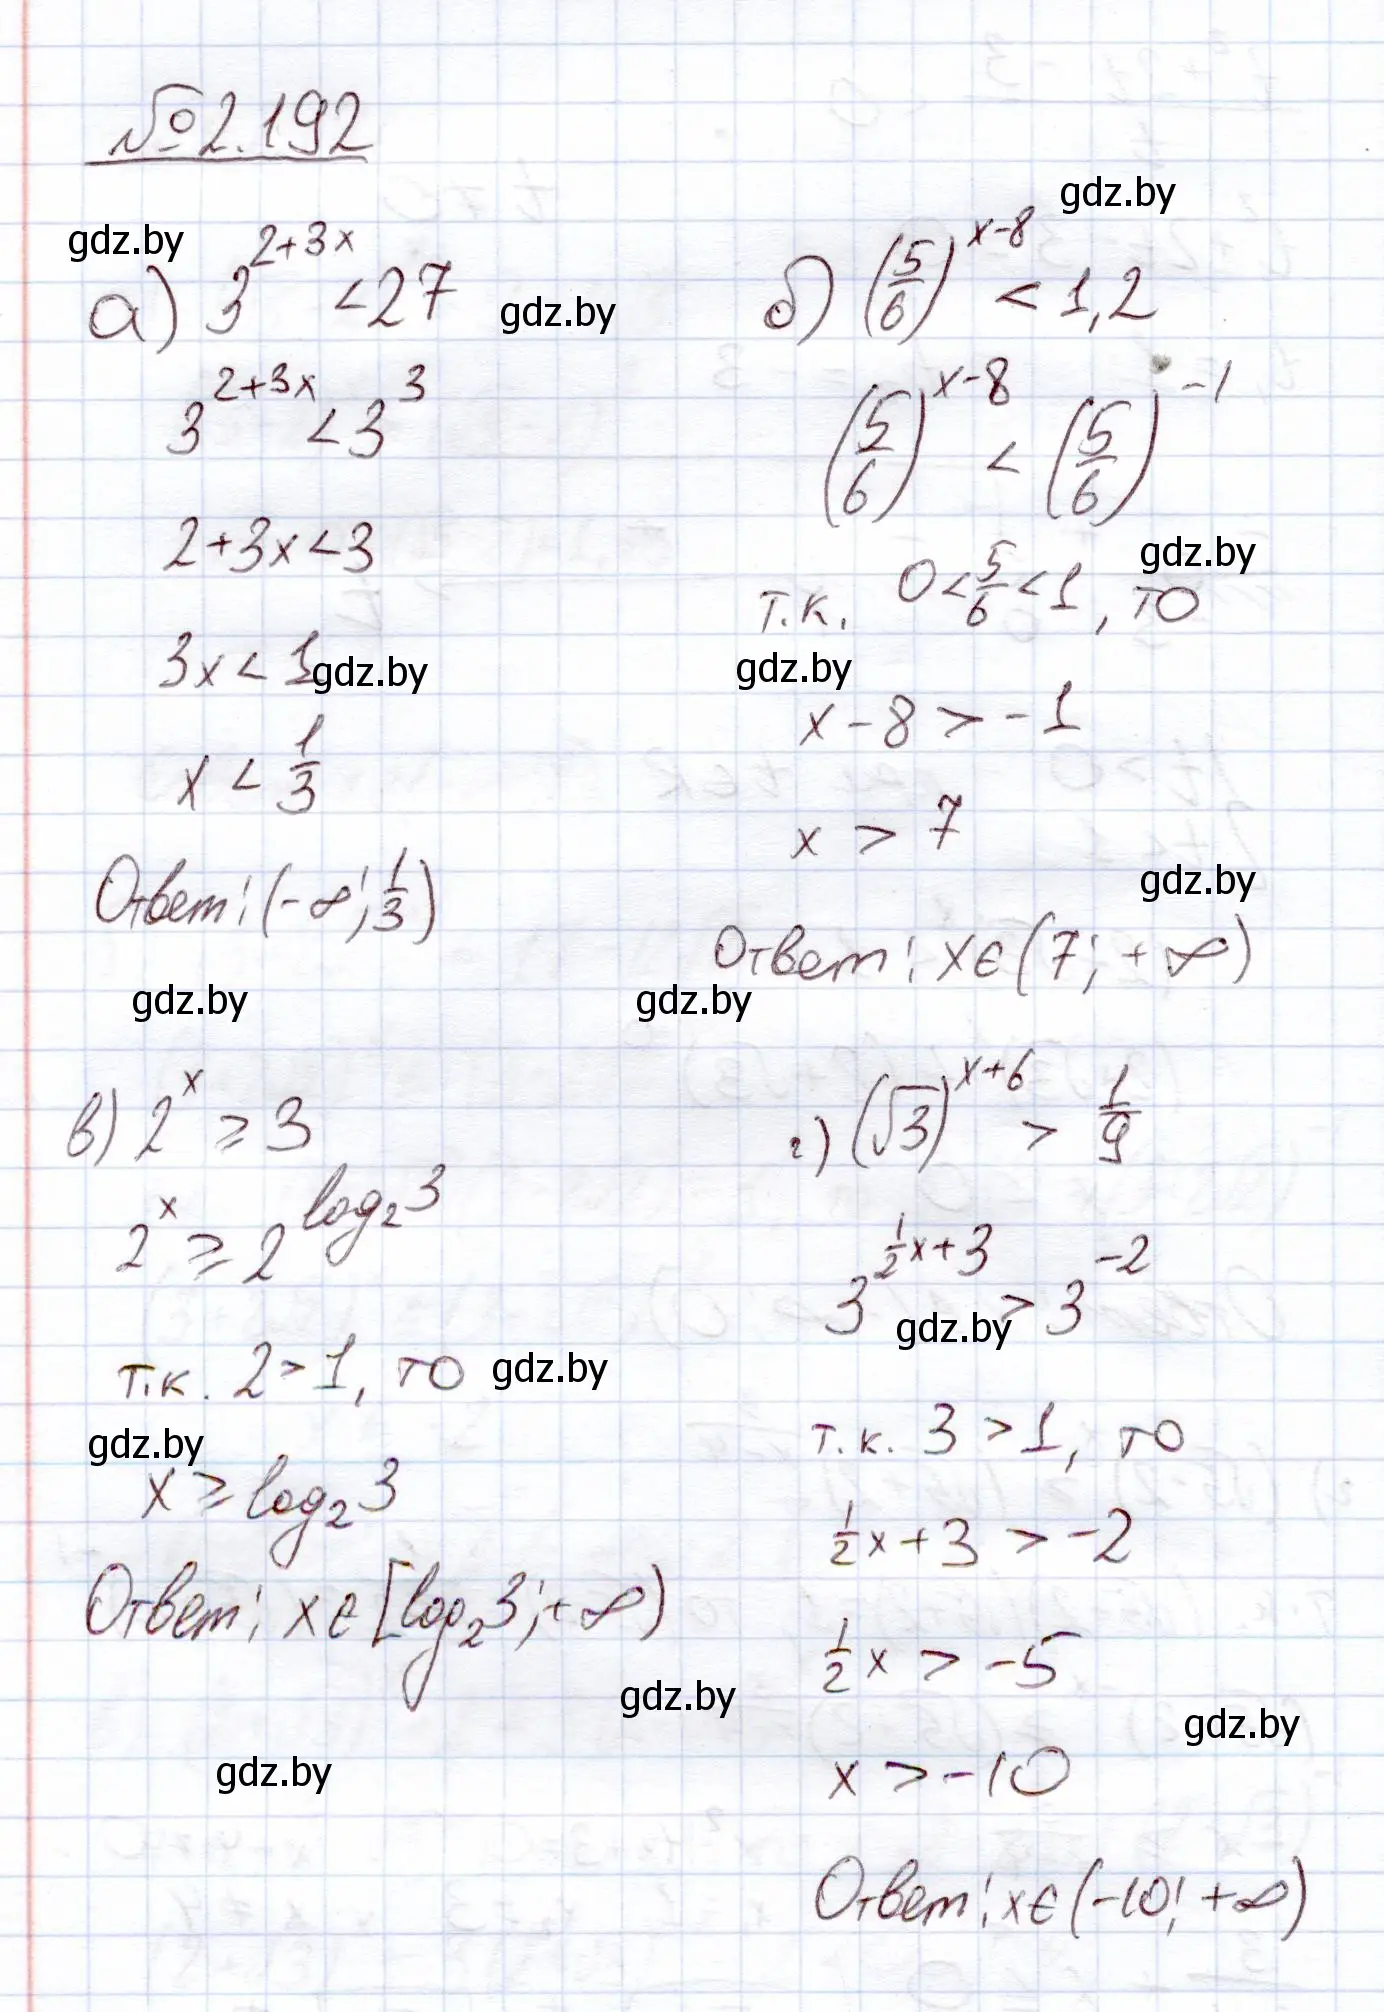 №2.192
gdz.by
gdz.by
а) 3^{2+3x} < 27
gdz.by
3^{2+3x} < 3^3
2+3x<3
3x < 1
gdz.by
x < 1/3
Ответ: (-∞; 1/3)
gdz.by
б) (5/6)^{x-8} < 1,2
(5/6)^{x-8} < (5/6)^{-1}
gdz.by
т.к. 0<5/6<1, то
gdz.by
x-8 > -1
x > 7
gdz.by
Ответ: x∈(7; +∞)
gdz.by
в) 2^x ≥ 3
2^x ≥ 2^{log_2 3}
т.к. 2>1, то
gdz.by
gdz.by
x ≥ log_2 3
Ответ: x∈[log_2 3; +∞)
gdz.by
gdz.by
г) (√3)^{x+6} > 1/9
3^{1/2 x+3} > 3^{-2}
gdz.by
т.к. 3 >1, то
1/2 x+3 > -2
1/2 x > -5
gdz.by
x > -10
Ответ: x∈(-10; +∞)